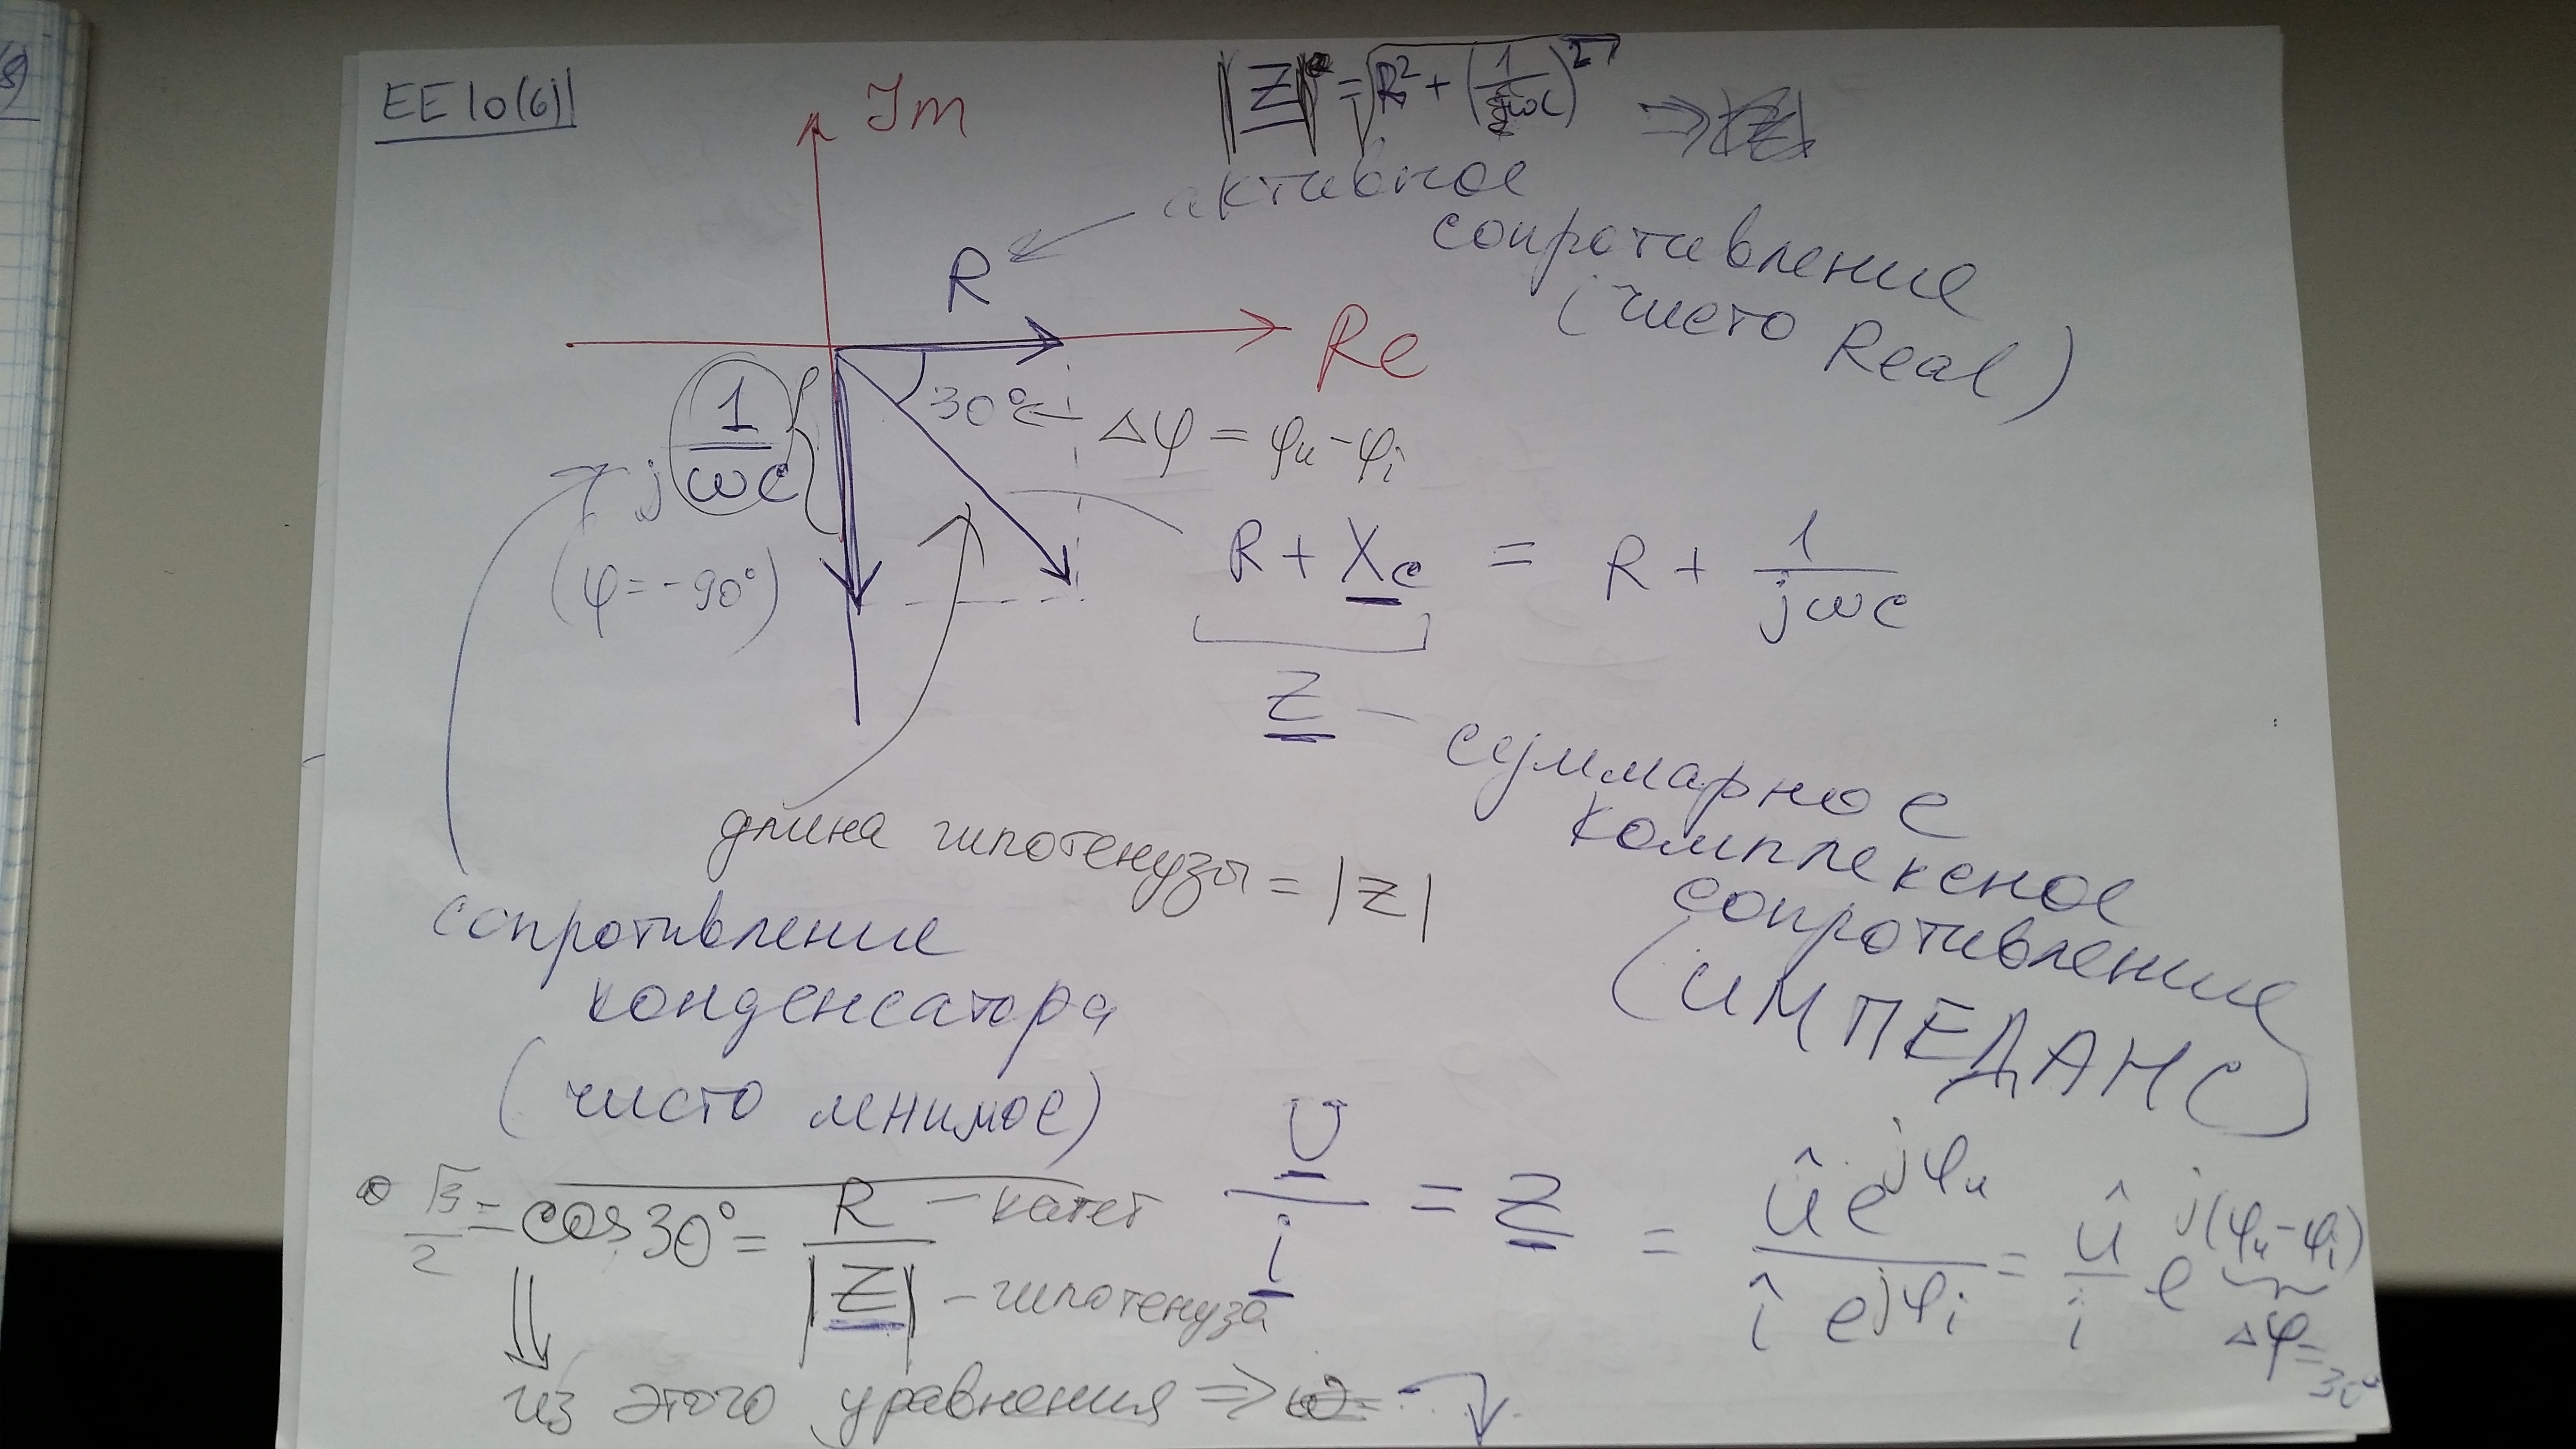 EE 10(6)
Im
|Z| = √(R² + (1/ωc)²) ⇒
активное
сопротивление
(чисто Real)
R
Re
30° Δφ = φu - φi
j 1/ωc
(φ = -90°)
R + Xc = R + 1/jωc
Z - суммарное
комплексное
сопротивление
(ИМПЕДАНС)
длина гипотенузы = |Z|
сопротивление
конденсатора
(чисто мнимое)
√3/2 = cos 30° = R/|Z|
- катет
- гипотенуза
U/i = Z = û e^jφu / î e^jφi = û/i e^j(φu-φi)
Δφ = 30°
из этого уравнения ⇒ ω =